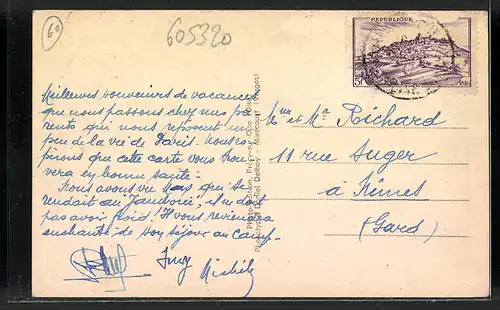 60
605320
REPUBLIQUE
Meilleurs souvenirs de vacances
que nous passons chez mes pa-
rents qui nous reposent un
peu de la vie de Paris. Nous es-
pérons que cette carte vous trou-
vera en bonne santé.
Nous avons vu Max qui se
rendait au "Jamborée", il ne doit
pas avoir froid. Il vous reviendra
enchanté de son séjour au camp.
Michèle
Mr Richard
11 rue Auger
à Nîmes
(Gard)
Daniel Delboy - Mirecourt (Vosges)